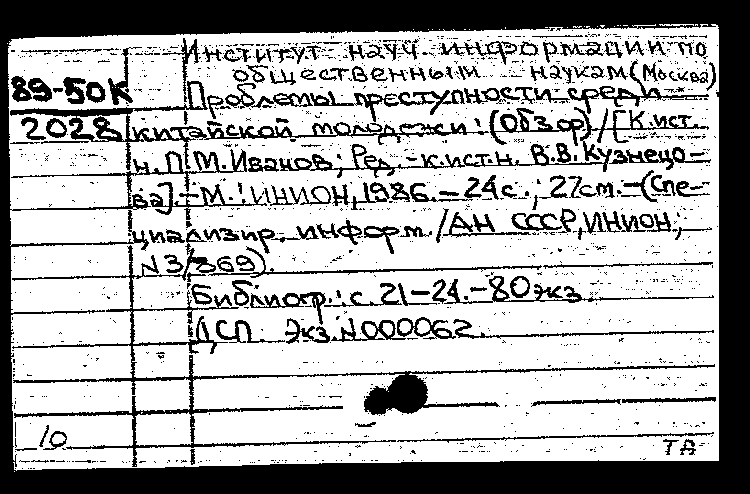 Институт науч. информации по
общественным наукам (Москва)
89-50К
Проблемы преступности среди
2028
китайской молодежи: (Обзор)/[К.ист.
н. П.М. Иванов; Ред. - к.ист.н. В.В. Кузнецо-
ва]. - М.: ИНИОН, 1986. - 24с.; 27см. - (Спе-
циализир. информ./АН СССР, ИНИОН;
N3/369).
Библиогр.: с. 21-24. - 80 экз
ДСП. Экз. N000062.
10
ТА